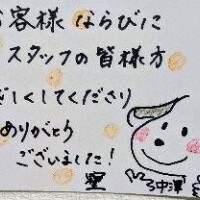 お客様 ならびに
スタッフの皆様方
ざしくしてくださり
ありがとう
ございました!